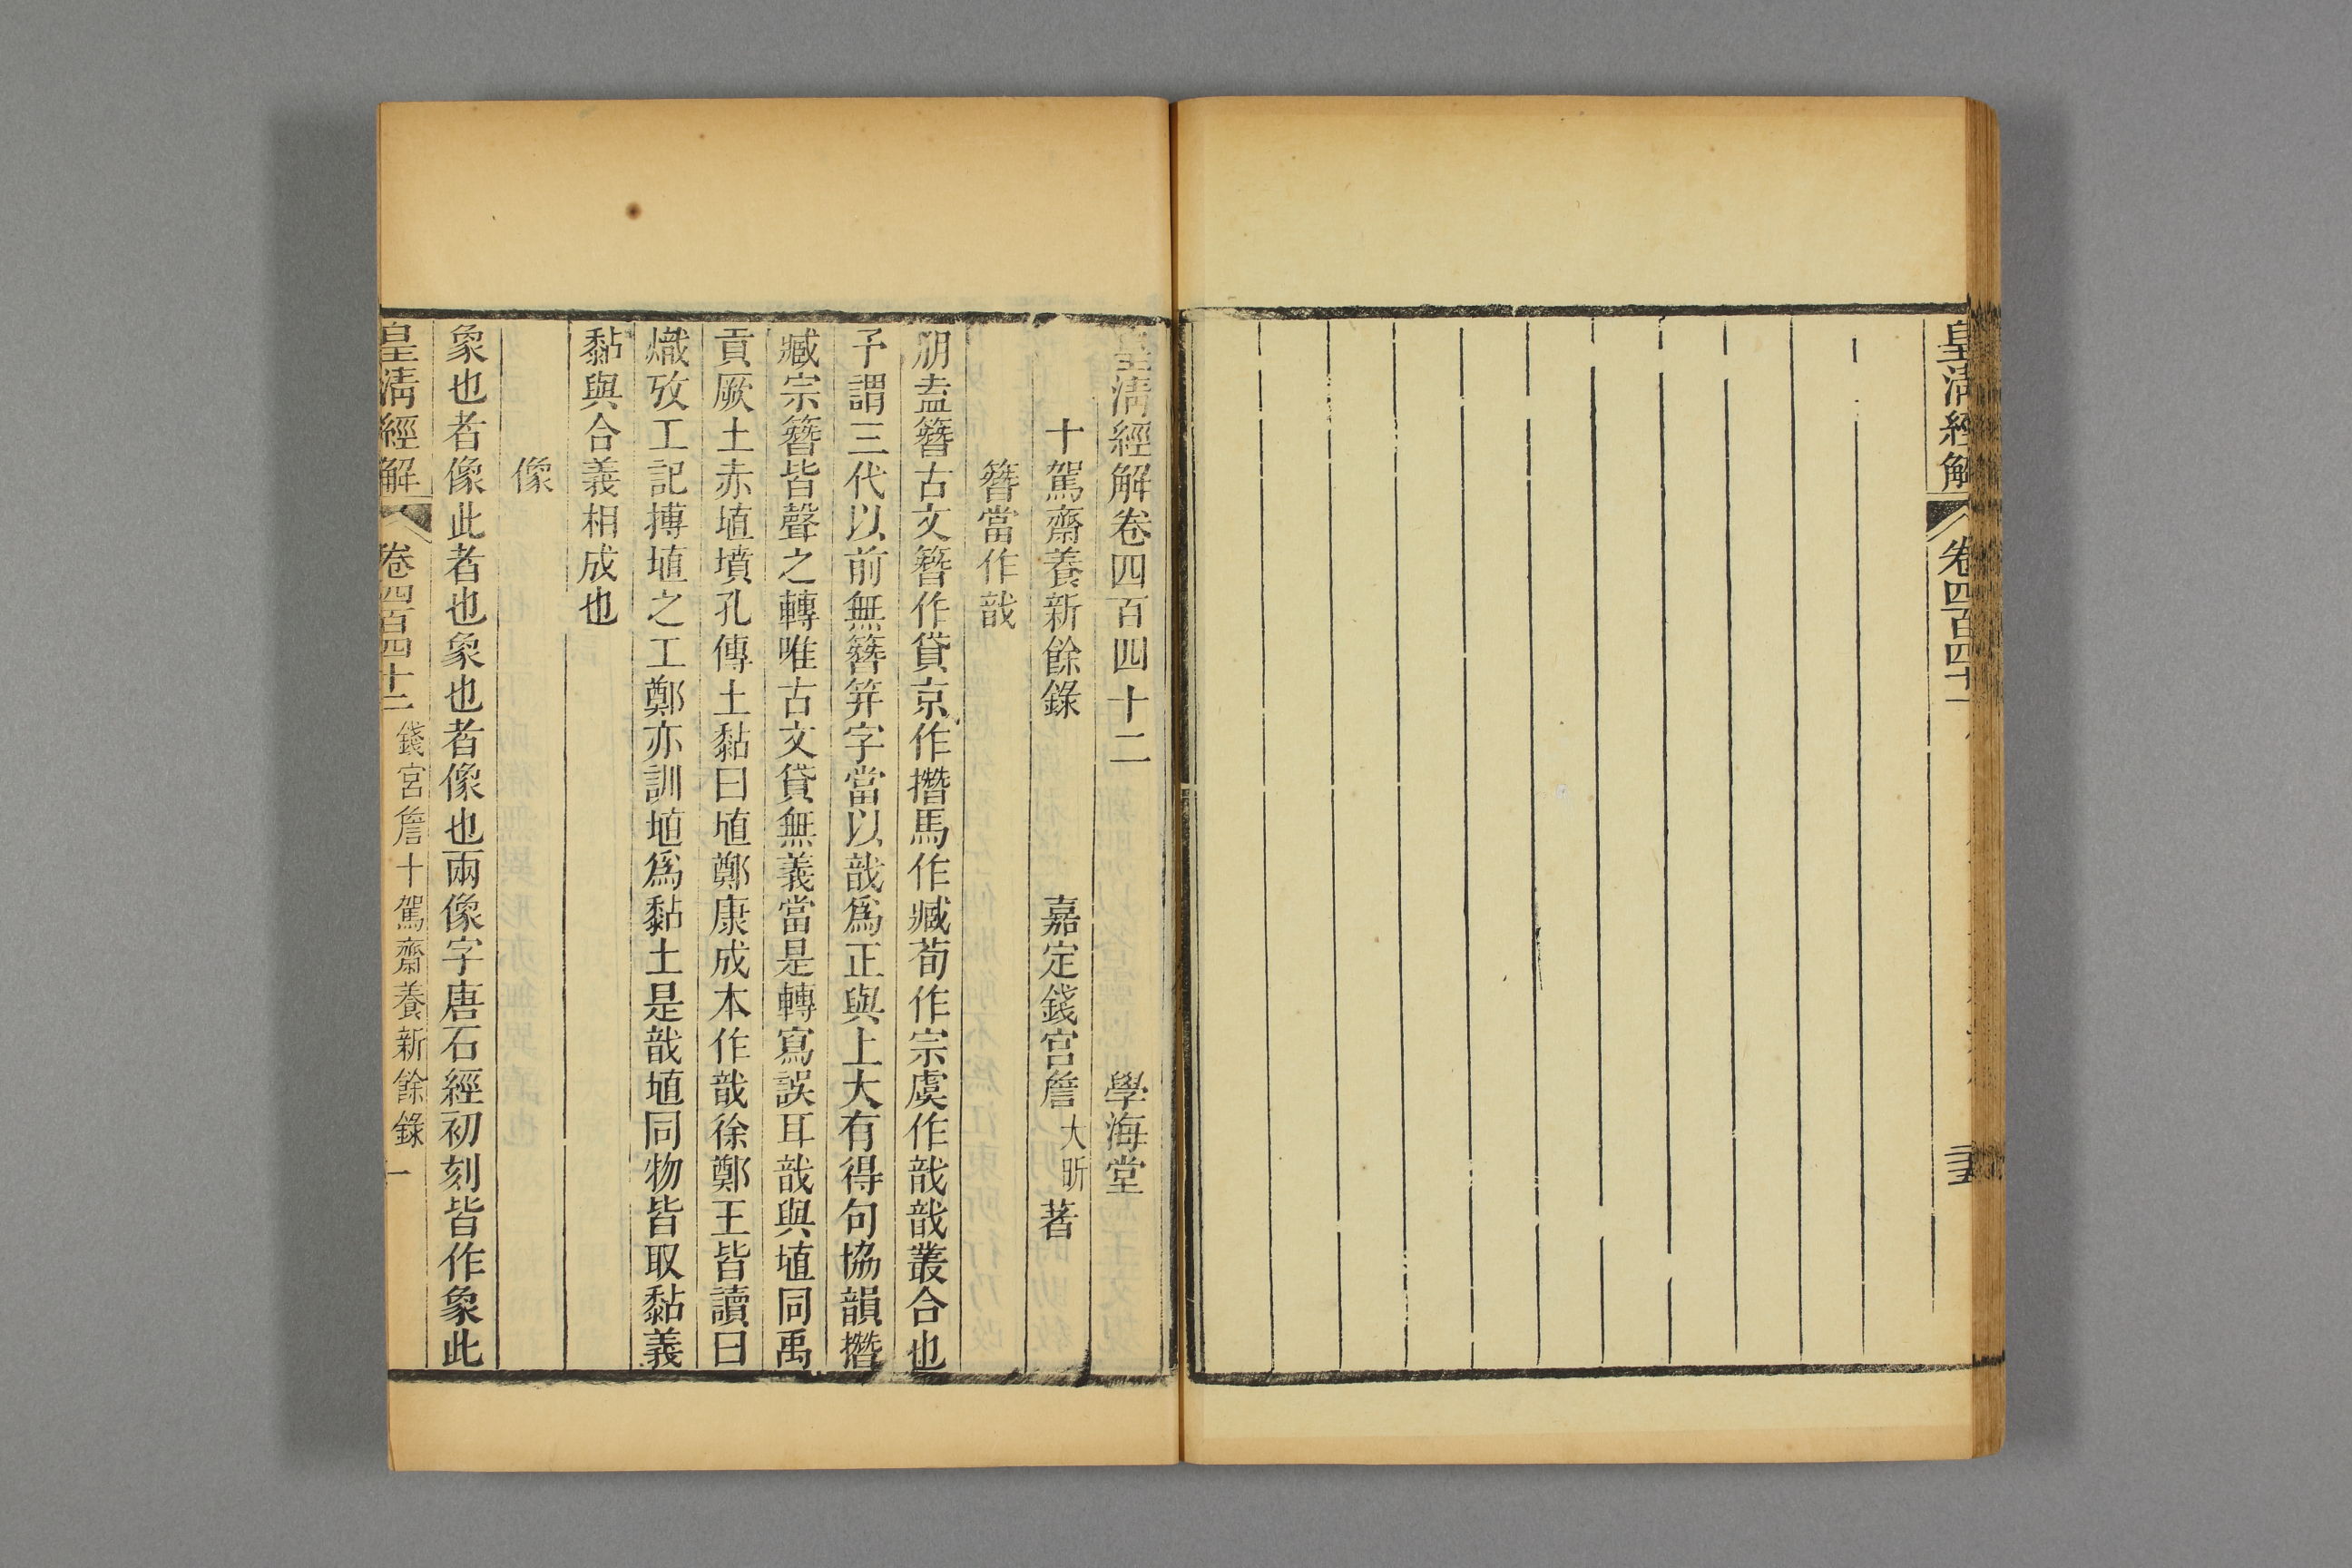 皇清經解
卷四百四十一
皇清經解卷四百四十二 學海堂
十駕齋養新餘錄 嘉定錢宮詹大昕著
簪當作戠
朋盍簪古文簪作貸京作撍馬作臧荀作宗虞作戠戠叢合也
予謂三代以前無簪笄字當以戠爲正與上大有得句協韻撍
臧宗簪皆聲之轉唯古文貸無義當是轉寫誤耳戠與埴同禹
貢厥土赤埴墳孔傳土黏曰埴鄭康成本作戠徐鄭王皆讀曰
熾攷工記搏埴之工鄭亦訓埴爲黏土是戠埴同物皆取黏義
黏與合義相成也
像
象也者像此者也象也者像也兩像字唐石經初刻皆作象此
皇清經解 卷四百四十二 錢宮詹十駕齋養新餘錄 一